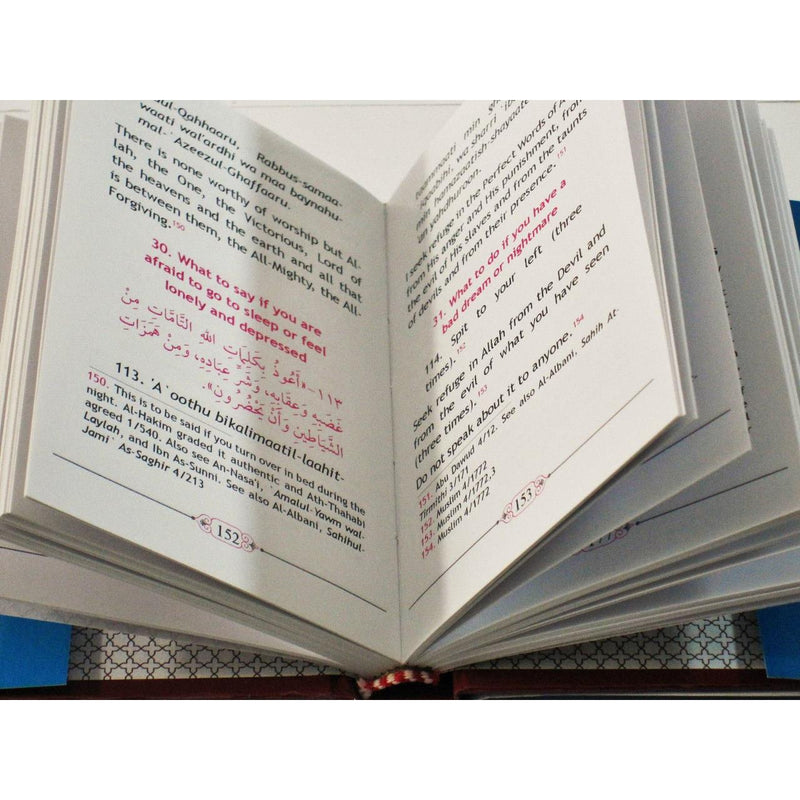 -Qahhaaru, Rabbus-samaa-
waati wal'ardhi wa maa baynahu-
mal-' Azeezul-Ghaffaaru.
There is none worthy of worship but Al-
lah, the One, the Victorious, Lord of
the heavens and the earth and all that
is between them, the All-Mighty, the All-
Forgiving.150
30. What to say if you are
afraid to go to sleep or feel
lonely and depressed
١١٣-«أَعُوذُ بِكَلِمَاتِ اللهِ التَّامَّاتِ مِنْ
غَضَبِهِ وَعِقَابِهِ، وَشَرِّ عِبَادِهِ، وَمِنْ هَمَزَاتِ
الشَّيَاطِينِ وَأَنْ يَحْضُرُونِ».
113. 'A'oothu bikalimaatil-laahit-
150. This is to be said if you turn over in bed during the
night. Al-Hakim graded it authentic and Ath-Thahabi
agreed 1/540. Also see An-Nasa'i, 'Amalul-Yawm wal-
Laylah, and Ibn As-Sunni. See also Al-Albani, Sahihul-
Jami' As-Saghir 4/213
152
min
wa sharri
hamazaatish-shayaat
yahdhuroon.
I seek refuge in the Perfect Words of A
from His anger and His punishment, from
the evil of His slaves and from the taunts
of devils and from their presence.151
31. What to do if you have a
bad dream or nightmare
114. Spit to your left (three
times).152
Seek refuge in Allah from the Devil and
from the evil of what you have seen
(three times).153
Do not speak about it to anyone.154
151. Abu Dawud 4/12. See also Al-Albani, Sahih At-
Tirmithi 3/171
152. Muslim 4/1772
153. Muslim 4/1772,3
154. Muslim 4/1772
153